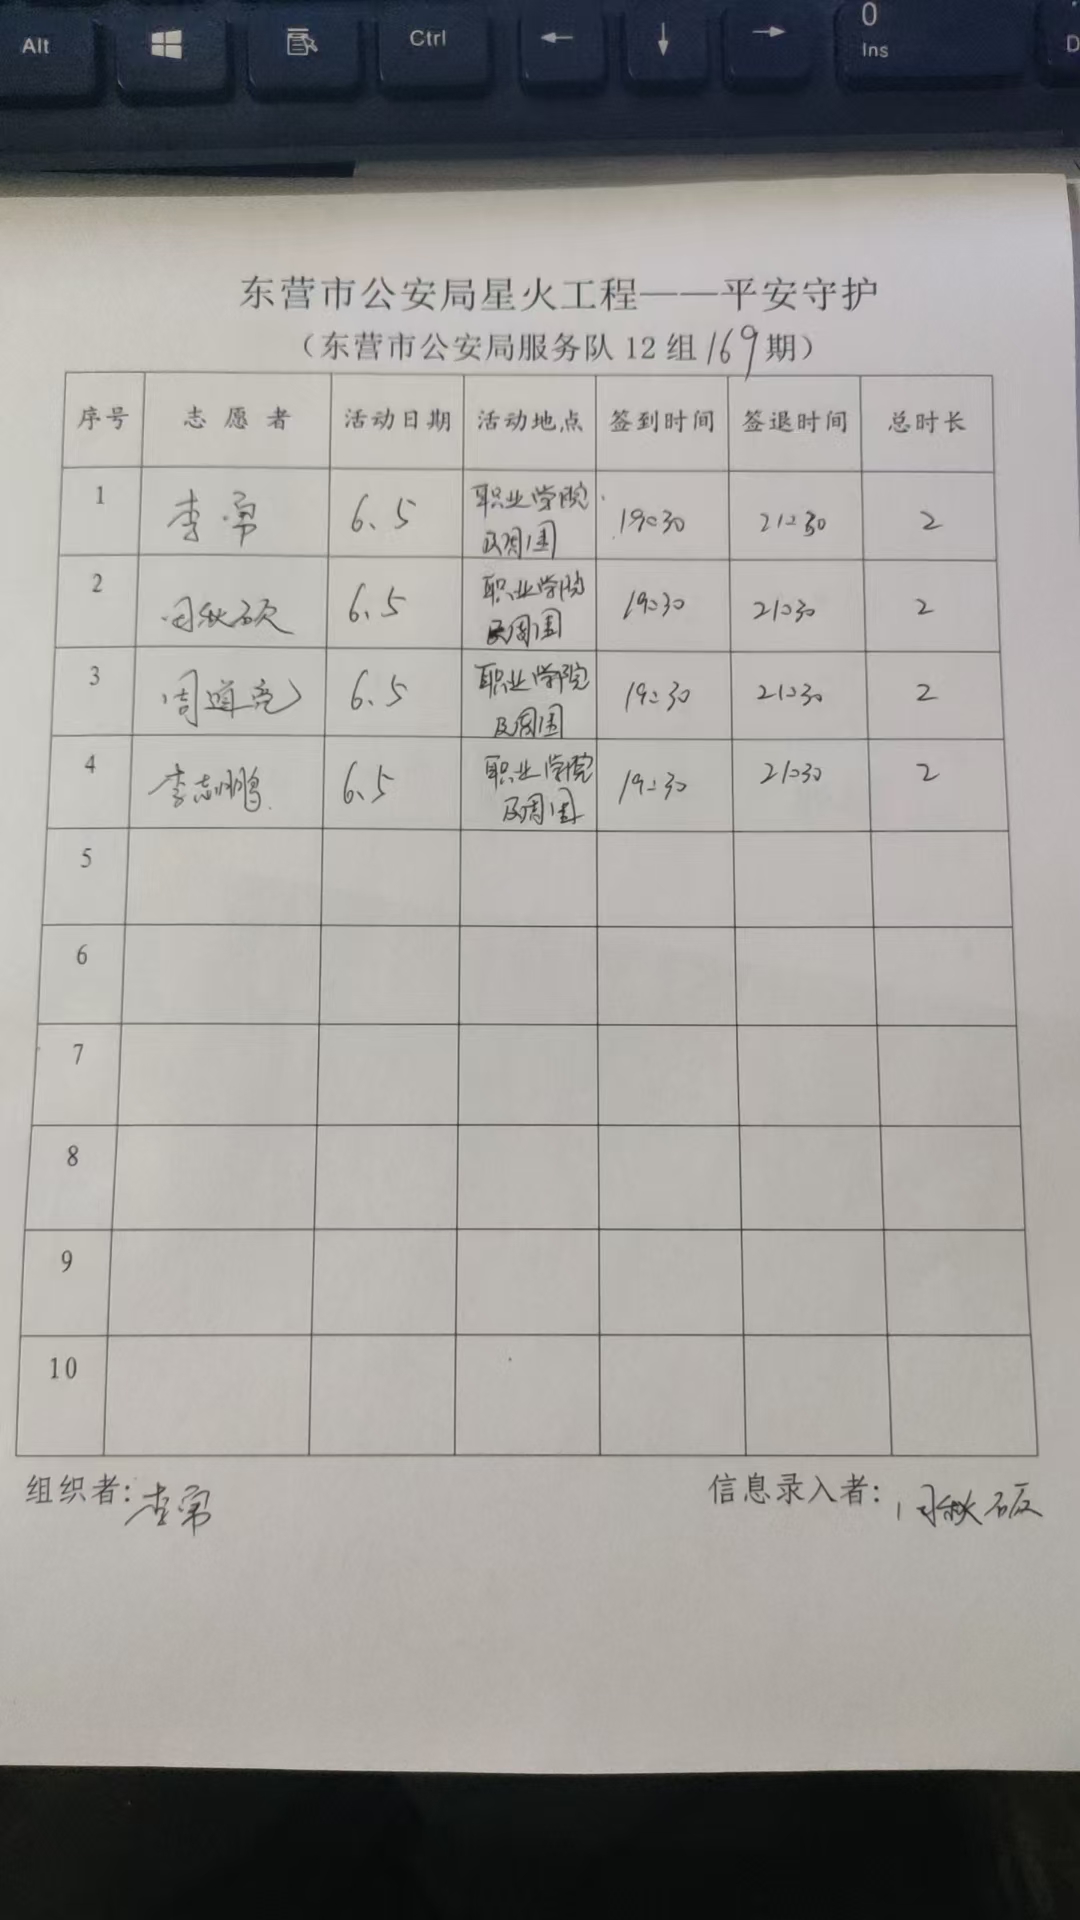 Alt
Ctrl
←
↓
→
0
Ins
D
东营市公安局星火工程——平安守护
（东营市公安局服务队 12 组 169 期）
序号 志愿者 活动日期 活动地点 签到时间 签退时间 总时长
1 李勇 6.5 职业学院及周围 19:30 21:30 2
2 闫秋硕 6.5 职业学院及周围 19:30 21:30 2
3 周道亮 6.5 职业学院及周围 19:30 21:30 2
4 李志鹏 6.5 职业学院及周围 19:30 21:30 2
5
6
7
8
9
10
组织者：李勇 信息录入者：闫秋硕